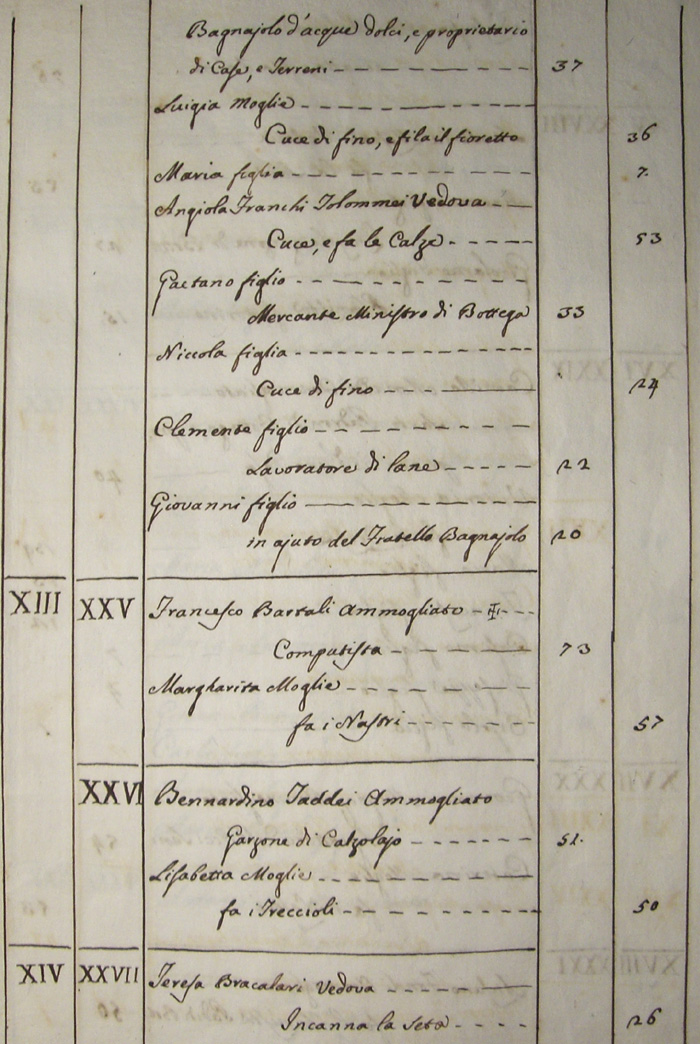 Bagnajolo d'acque dolci, e proprietario
di Case, e Terreni 37
Luigia Moglie
Cuce di fino, e fila il fioretto 36
Maria figlia 7.
Angiola Franchi Tolommei Vedova
Cuce, e fa le Calze 53
Gaetano figlio
Mercante Ministro di Bottega 33
Niccola figlia
Cuce di fino 24
Clemente figlio
Lavoratore di lane 22
Giovanni figlio
in ajuto del Fratello Bagnajolo 20
XIII XXV Francesco Bartali Ammogliato
Computista 73
Margharita Moglie
fa i Nastri 57
XXVI Bernardino Taddei Ammogliato
Garzone di Calzolajo 51.
Lisabetta Moglie
fa i Treccioli 50
XIV XXVII Teresa Bracalari Vedova
Incanna la Seta 26